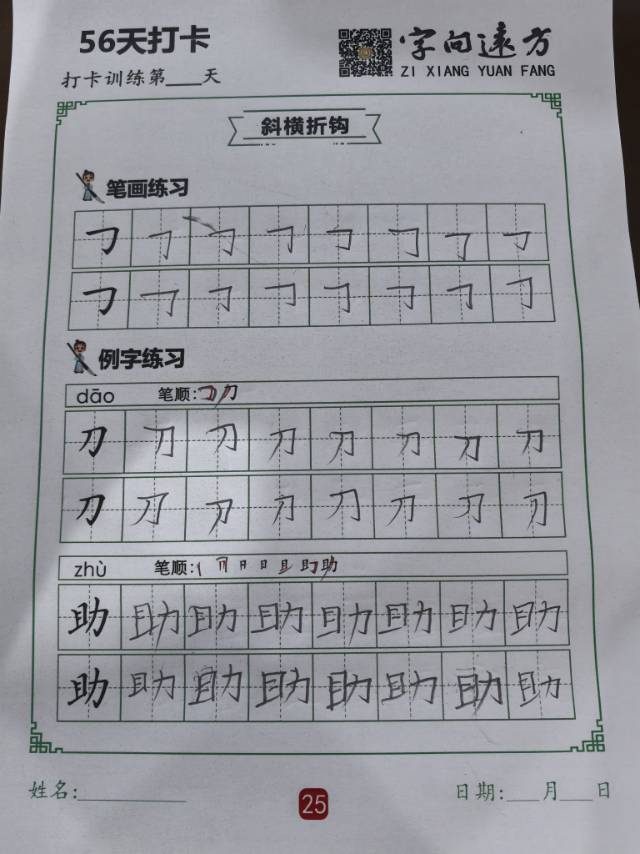 56天打卡
字向远方
打卡训练第___天
ZI XIANG YUAN FANG
斜横折钩
笔画练习
㇆ ㇆ ㇆ ㇆ ㇆ ㇆ ㇆ ㇆
㇆ ㇆ ㇆ ㇆ ㇆ ㇆ ㇆ ㇆
例字练习
dāo 笔顺:㇆刀
刀 刀 刀 刀 刀 刀 刀 刀
刀 刀 刀 刀 刀 刀 刀 刀
zhù 笔顺:
助 助 助 助 助 助 助 助
助 助 助 助 助 助 助 助
姓名:___________
25
日期:___月___日